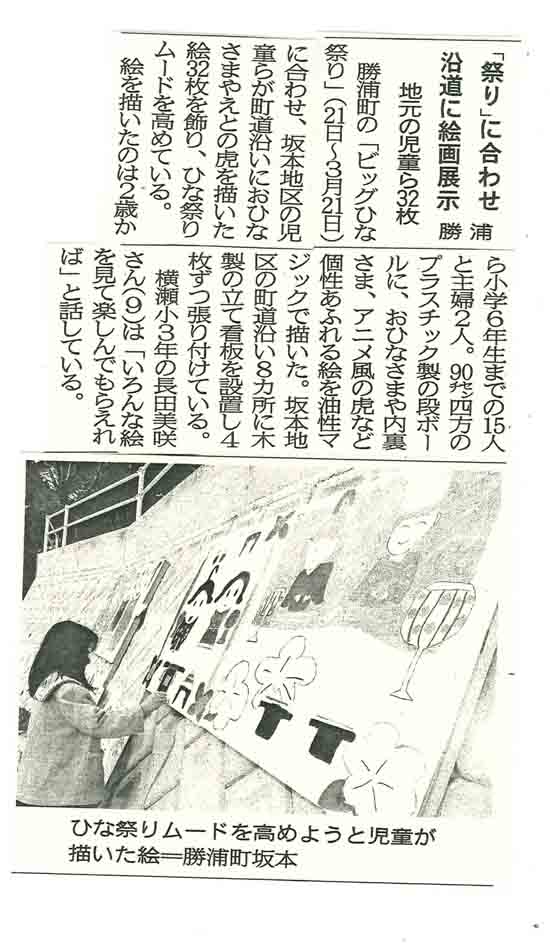 「祭り」に合わせ
沿道に絵画展示
勝浦
地元の児童ら32枚
勝浦町の「ビッグひな
祭り」(21日〜3月21日)
に合わせ、坂本地区の児
童らが町道沿いにおひな
さまやえとの虎を描いた
絵32枚を飾り、ひな祭り
ムードを高めている。
絵を描いたのは2歳か
ら小学6年生までの15人
と主婦2人。90㌢四方の
プラスチック製の段ボー
ルに、おひなさまや内裏
さま、アニメ風の虎など
個性あふれる絵を油性マ
ジックで描いた。坂本地
区の町道沿い8カ所に木
製の立て看板を設置し4
枚ずつ張り付けている。
横瀬小3年の長田美咲
さん(9)は「いろんな絵
を見て楽しんでもらえれ
ば」と話している。
ひな祭りムードを高めようと児童が
描いた絵=勝浦町坂本